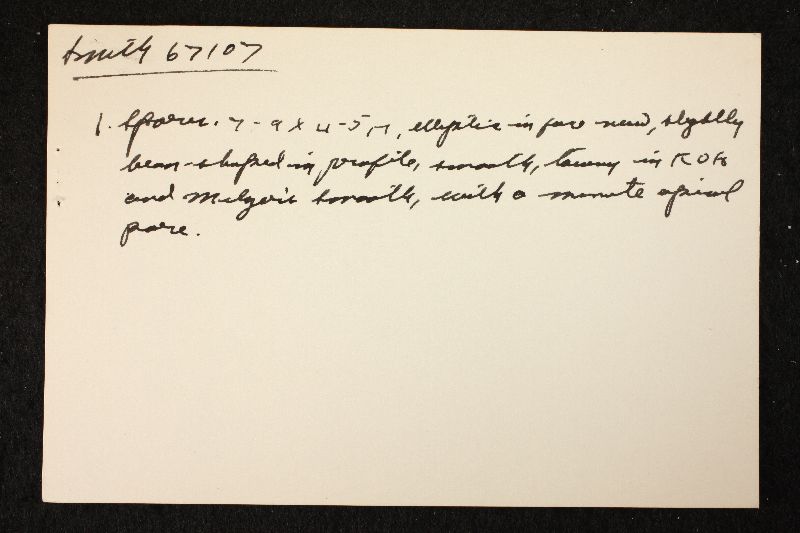 Smith 67107
1. Spores. 7-9 x 4-5 µ, elliptic in face view, slightly
bean-shaped in profile, smooth, tawny in KOH
and Melzer's smooth, with a minute apical
pore.